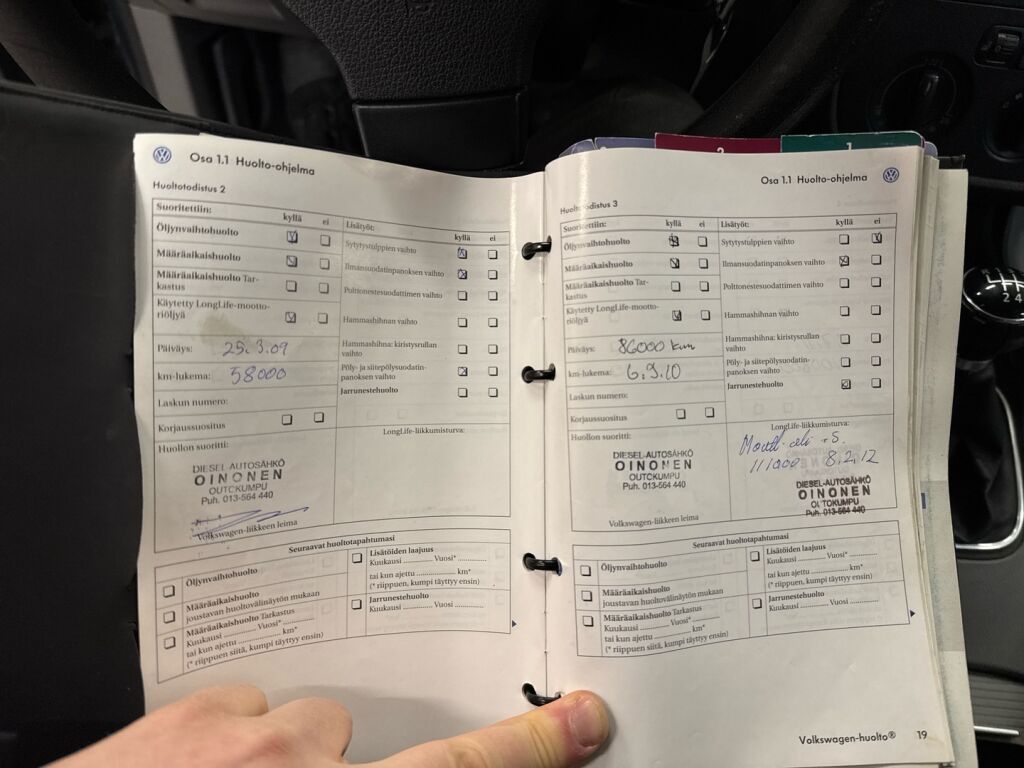 Osa 1.1 Huolto-ohjelma
Huoltotodistus 2
Suoritettiin: kyllä ei
Öljynvaihtohuolto
Määräaikaishuolto
Määräaikaishuolto Tar-
kastus
Käytetty LongLife-mootto-
riöljyä
Päiväys: 25.3.09
km-lukema: 58000
Laskun numero:
Korjaussuositus
Huollon suoritti:
DIESEL-AUTOSÄHKÖ
OINONEN
OUTOKUMPU
Puh. 013-564 440
Volkswagen-liikkeen leima
Lisätyöt: kyllä ei
Sytytystulppien vaihto
Ilmansuodatinpanoksen vaihto
Polttonestesuodattimen vaihto
Hammashihnan vaihto
Hammashihna: kiristysrullan
vaihto
Pöly- ja siitepölysuodatin-
panoksen vaihto
Jarrunestehuolto
LongLife-liikkumisturva:
Seuraavat huoltotapahtumasi
Öljynvaihtohuolto
Määräaikaishuolto
joustavan huoltovälinäytön mukaan
Määräaikaishuolto Tarkastus
Kuukausi ............ Vuosi*............
tai kun ajettu ............... km*
(* riippuen siitä, kumpi täyttyy ensin)
Lisätöiden laajuus
Kuukausi ............ Vuosi*............
tai kun ajettu ............... km*
(* riippuen, kumpi täyttyy ensin)
Jarrunestehuolto
Kuukausi ............ Vuosi ............
2
1
Osa 1.1 Huolto-ohjelma
Huoltotodistus 3
Suoritettiin: kyllä ei
Öljynvaihtohuolto
Määräaikaishuolto
Määräaikaishuolto Tar-
kastus
Käytetty LongLife-mootto-
riöljyä
Päiväys: 86000 km
km-lukema: 6.9.10
Laskun numero:
Korjaussuositus
Huollon suoritti:
DIESEL-AUTOSÄHKÖ
OINONEN
OUTOKUMPU
Puh. 013-564 440
Volkswagen-liikkeen leima
Lisätyöt: kyllä ei
Sytytystulppien vaihto
Ilmansuodatinpanoksen vaihto
Polttonestesuodattimen vaihto
Hammashihnan vaihto
Hammashihna: kiristysrullan
vaihto
Pöly- ja siitepölysuodatin-
panoksen vaihto
Jarrunestehuolto
LongLife-liikkumisturva:
111000 8.2.12
DIESEL-AUTOSÄHKÖ
OINONEN
OUTOKUMPU
Puh. 013-564 440
Seuraavat huoltotapahtumasi
Öljynvaihtohuolto
Määräaikaishuolto
joustavan huoltovälinäytön mukaan
Määräaikaishuolto Tarkastus
Kuukausi ............ Vuosi*............
tai kun ajettu ............... km*
(* riippuen siitä, kumpi täyttyy ensin)
Lisätöiden laajuus
Kuukausi ............ Vuosi*............
tai kun ajettu ............... km*
(* riippuen, kumpi täyttyy ensin)
Jarrunestehuolto
Kuukausi ............ Vuosi ............
Volkswagen-huolto® 19
2 4